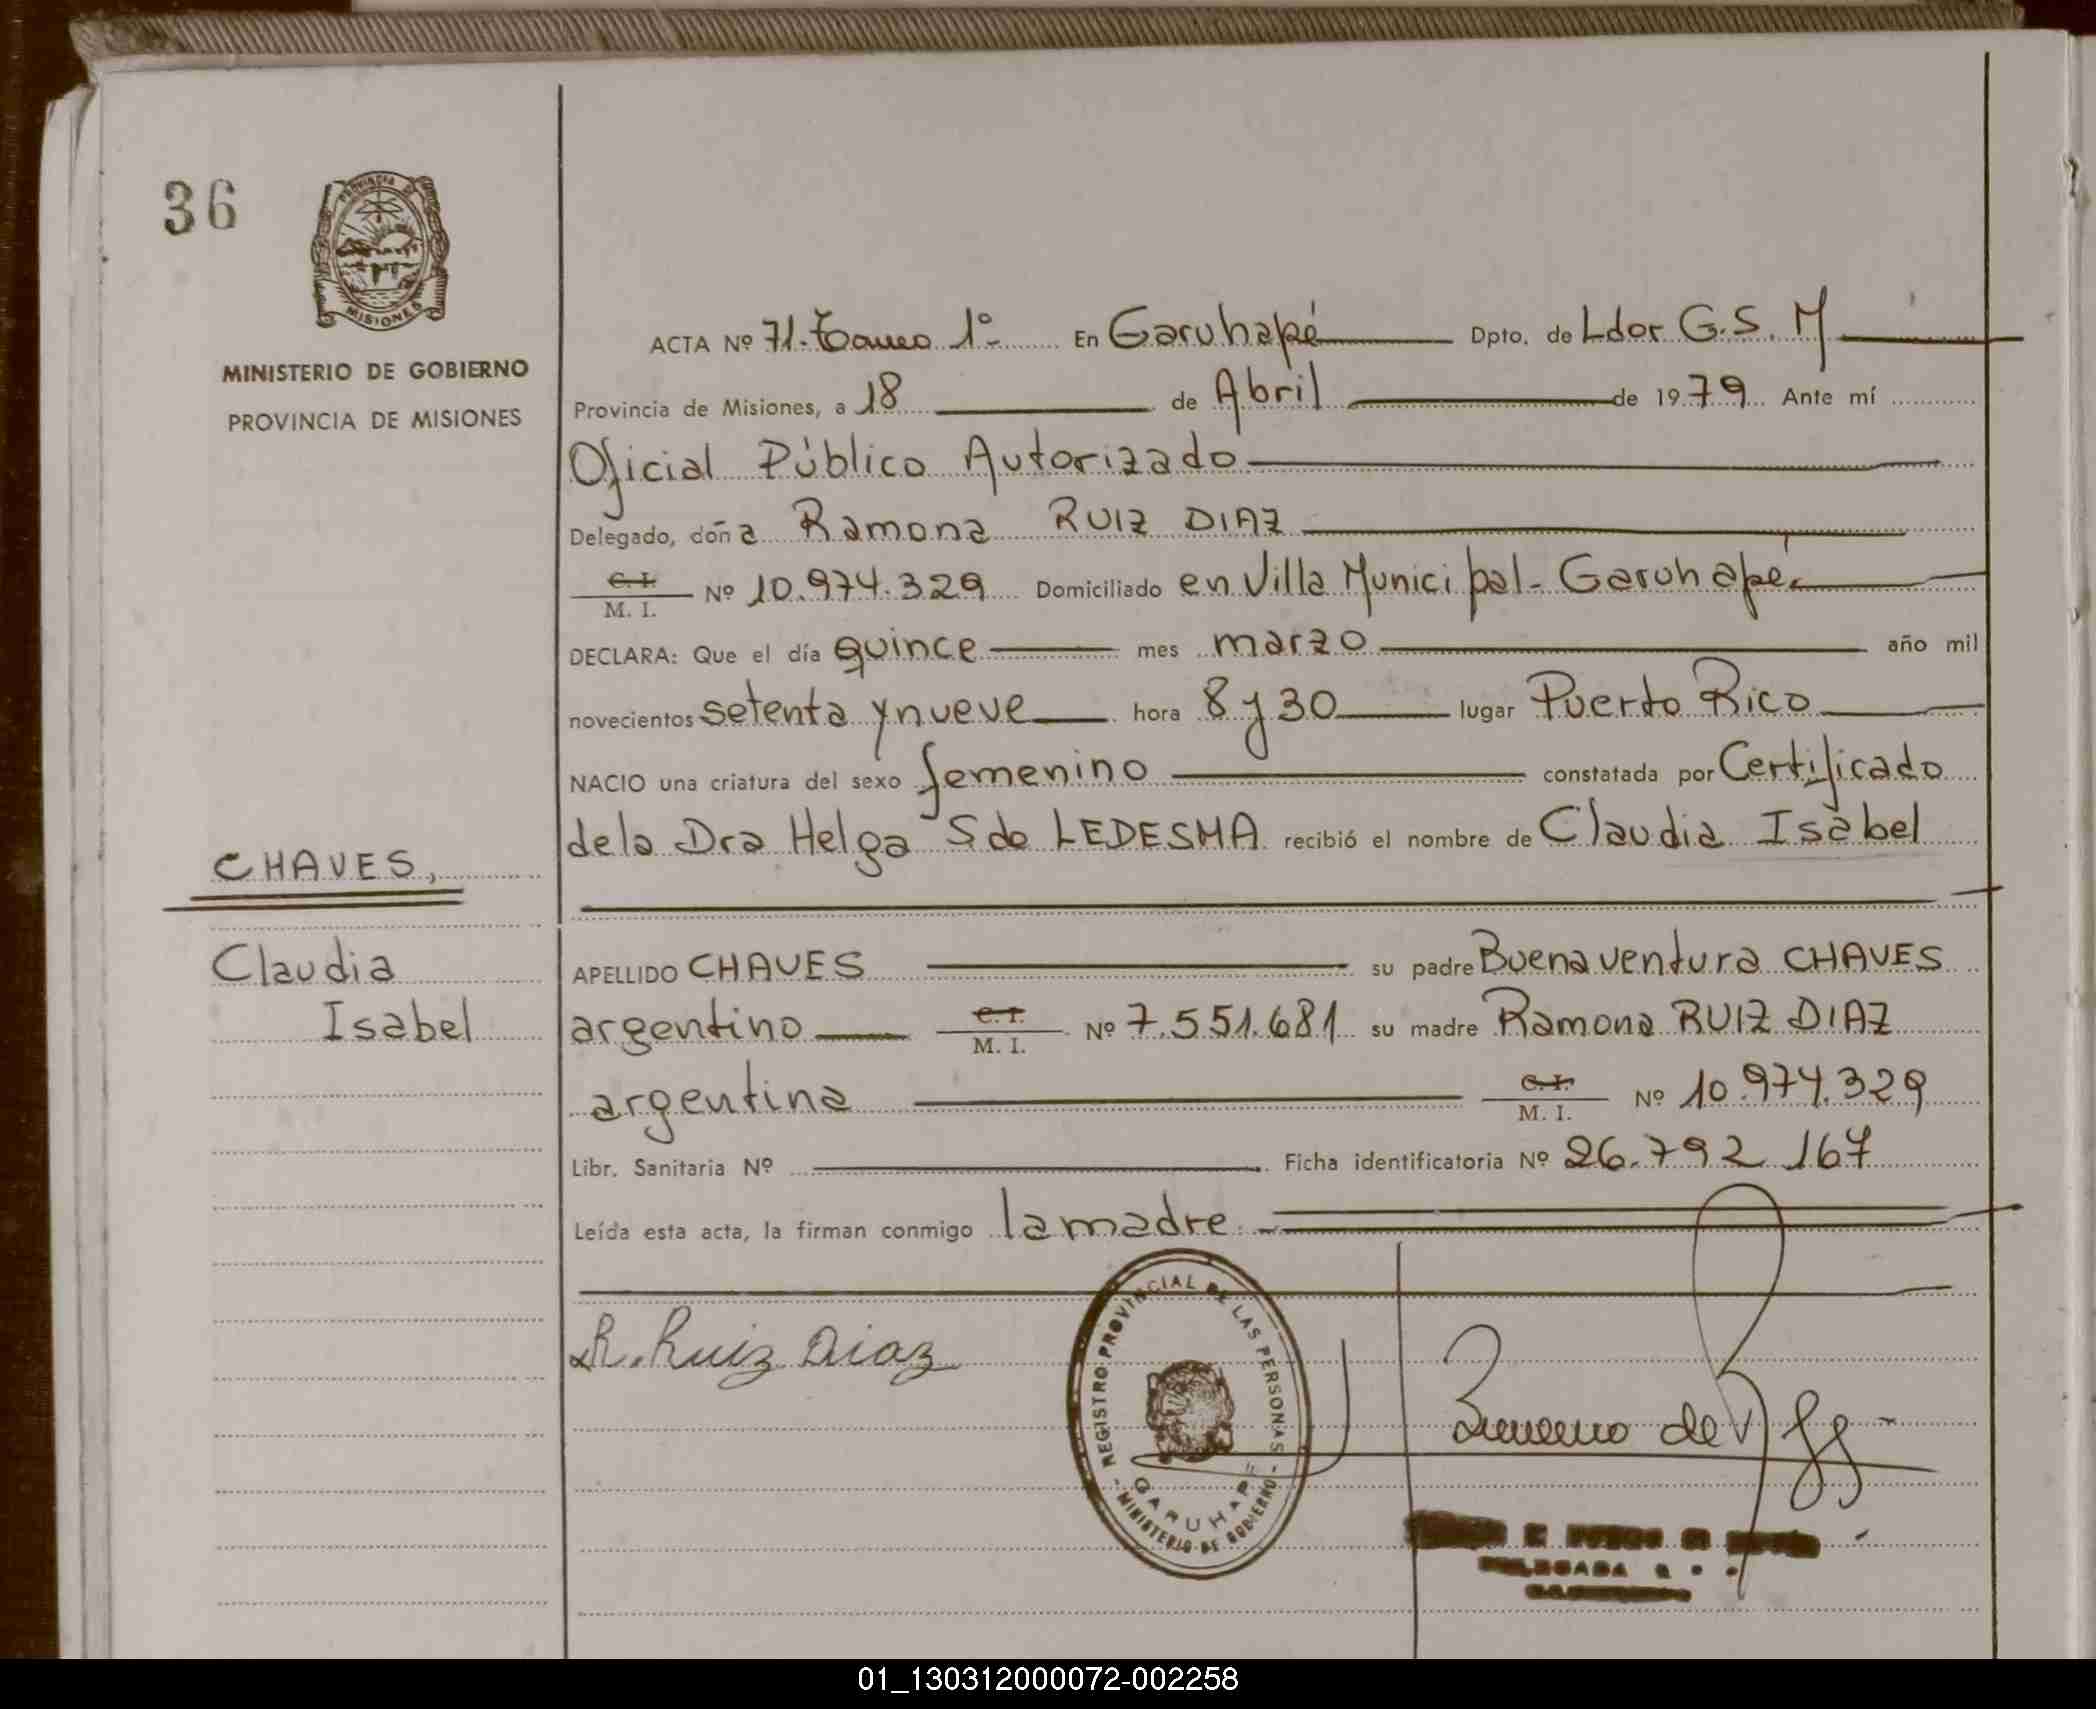 36
PROVINCIA DE
MISIONES
MINISTERIO DE GOBIERNO
PROVINCIA DE MISIONES
ACTA Nº 71. Tomo 1º- En Garuhapé Dpto. de Ldor G.S.M
Provincia de Misiones, a 18 de Abril de 1979. Ante mí
Oficial Público Autorizado
Delegado, doña Ramona RUIZ DIAZ
C.I. M. I. Nº 10.974.329 Domiciliado en Villa Municipal - Garuhapé.
DECLARA: Que el día quince mes marzo año mil
novecientos setenta y nueve hora 8 y 30 lugar Puerto Rico
NACIO una criatura del sexo femenino constatada por Certificado
de la Dra Helga S de LEDESMA recibió el nombre de Claudia Isabel
CHAVES,
Claudia
Isabel
APELLIDO CHAVES su padre Buenaventura CHAVES
argentino C.I. M. I. Nº 7.551.681 su madre Ramona RUIZ DIAZ
argentina C.I. M. I. Nº 10.974.329
Libr. Sanitaria Nº Ficha identificatoria Nº 26.792 167
Leída esta acta, la firman conmigo la madre.
R. Ruiz Diaz
REGISTRO PROVINCIAL DE LAS PERSONAS
GARUHAPÉ
MINISTERIO DE GOBIERNO
DELEGADA
01_130312000072-002258